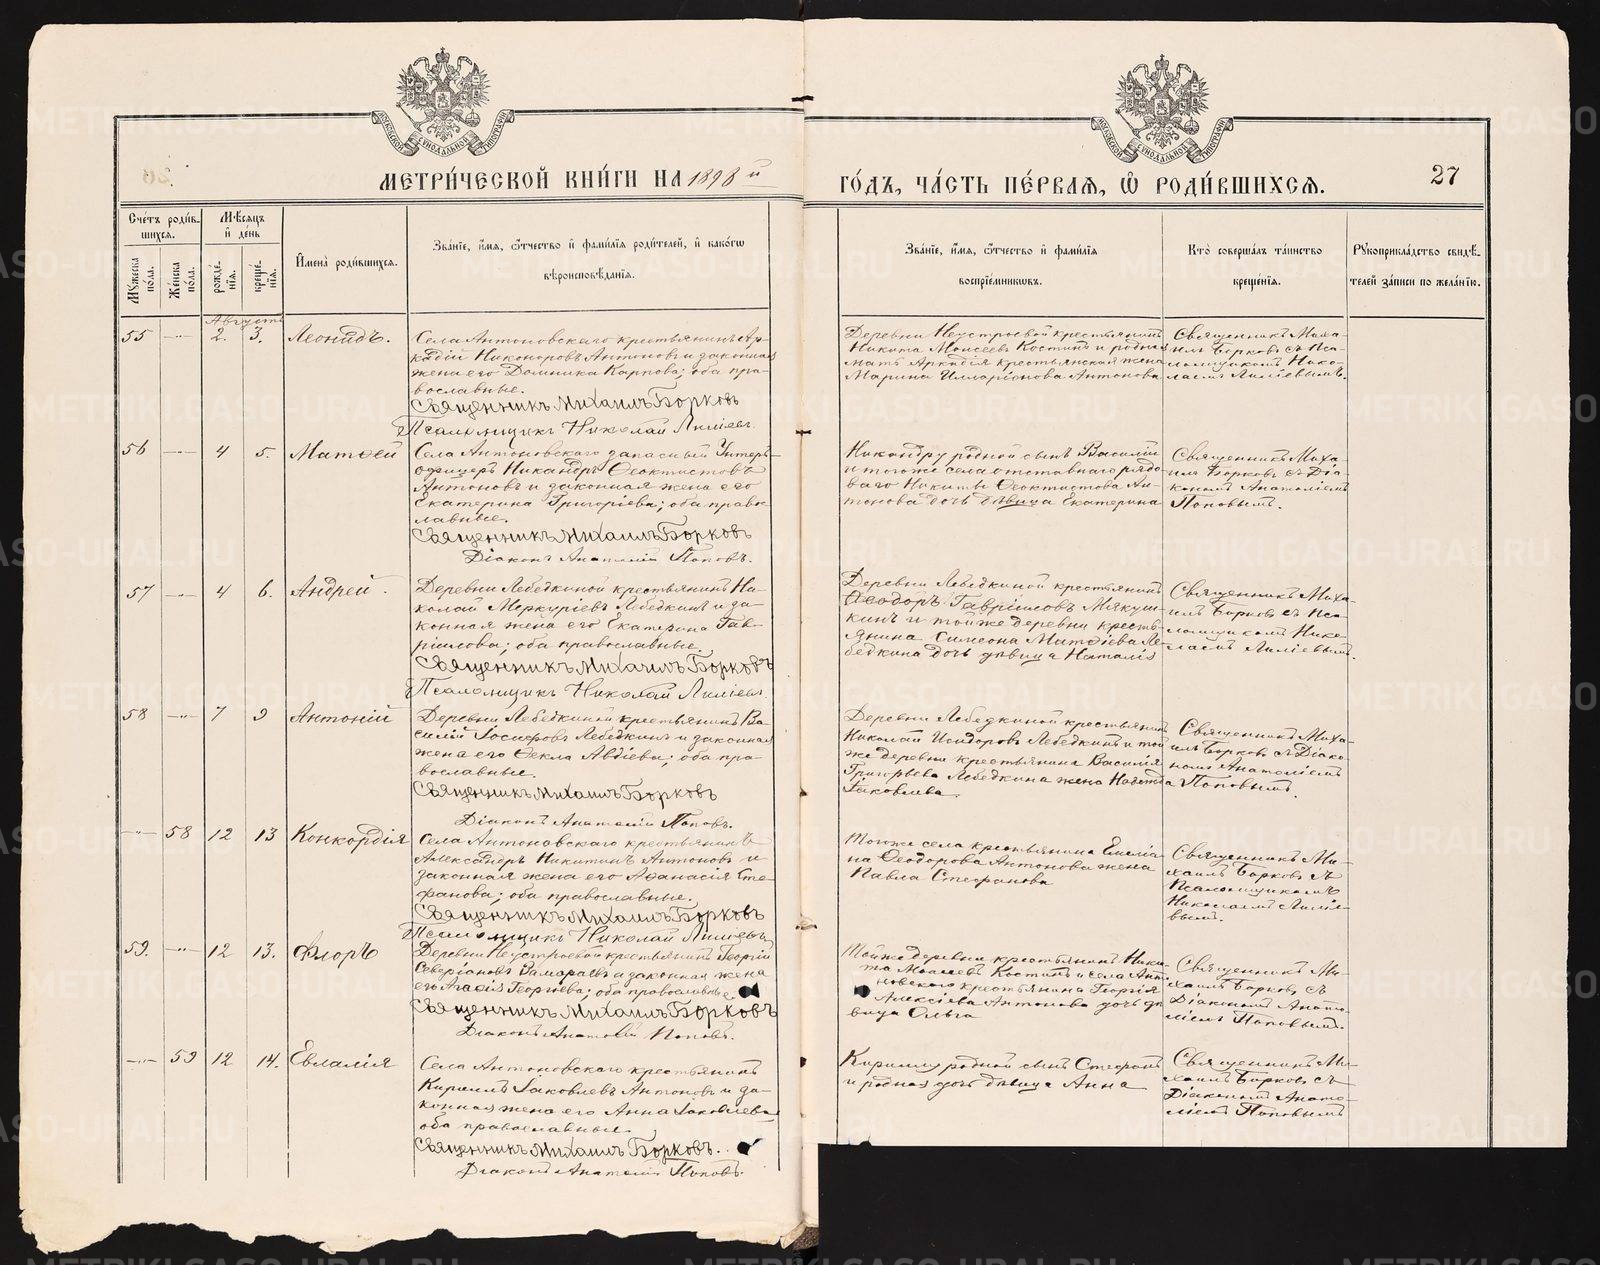 МЕТРИ́ЧЕСКОЙ КНИ́ГИ НА 1898 й
ГО́ДЪ, ЧА́СТЬ ПЕ́РВАѦ, Ѡ҆ РОДИ́ВШИХСѦ.
27
МОСКОВСКОЙ СѴНОДАЛЬНОЙ ТИПОГРАФІИ
МОСКОВСКОЙ СѴНОДАЛЬНОЙ ТИПОГРАФІИ
Сче́тъ роди́в-
шихсѧ.
Мꙋ́жеска по́ла.
Же́нска по́ла.
Мѣ́сѧцъ
и҆ де́нь
рожде́-
нїѧ.
креще́-
нїѧ.
И҆мена̀ роди́вшихсѧ.
Зва́нїе, и҆́мѧ, ѻ҆́тчество и҆ фами́лїѧ роди́телей, и҆ како́гѡ
вѣроисповѣ́данїѧ.
Зва́нїе, и҆́мѧ, ѻ҆́тчество и҆ фами́лїѧ
воспрїе́мникѡвъ.
Кто̀ соверша́лъ та́инство
креще́нїѧ.
Рꙋкоприкла́дство свидѣ́-
телей за́писи по жела́нїю.
Августъ
55 —"— 2. 3. Леонидъ.
Села Антоновскаго крестьянинъ Ар-
кадій Никоноровъ Антоновъ и законная
жена его Домника Карпова; оба пра-
вославные.
Священникъ Михаилъ Борковъ
Псаломщикъ Николай Лиліевъ.
Деревни Неустроевой крестьянинъ
Никита Моисеевъ Костинъ и родная
мать Аркадія крестьянская жена
Марина Илларіонова Антонова
Священникъ Миха-
илъ Борковъ съ Пса-
ломщикомъ Нико-
лаемъ Лиліевымъ.
56 —"— 4 5. Матѳей
Села Антоновскаго запасный Унтеръ-
офицеръ Никандръ Ѳеоктистовъ
Антоновъ и законная жена его
Екатерина Григоріева; оба право-
славные.
Священникъ Михаилъ Борковъ
Діаконъ Анатолій Поповъ.
Никандру родной сынъ Василій
и тогоже села отставнаго рядо-
ваго Никиты Ѳеоктистова Ан-
тонова дочь дѣвица Екатерина
Священникъ Миха-
илъ Борковъ съ Діа-
кономъ Анатоліемъ
Поповымъ.
57 —"— 4 6. Андрей.
Деревни Лебедкиной крестьянинъ Ни-
колай Меркуріевъ Лебедкинъ и за-
конная жена его Екатерина Гав-
ріилова; оба православные
Священникъ Михаилъ Борковъ
Псаломщикъ Николай Лиліевъ.
Деревни Лебедкиной крестьянинъ
Ѳеодоръ Гавріиловъ Мякуш-
кинъ и тойже деревни кресть-
янина Симеона Матѳіева Ле-
бедкина дочь дѣвица Наталія
Священникъ Миха-
илъ Борковъ съ Пса-
ломщикомъ Нико-
лаемъ Лиліевымъ.
58 —"— 7 9 Антоній
Деревни Лебедкиной крестьянинъ Ва-
силій Іосифовъ Лебедкинъ и законная
жена его Ѳекла Авдіева; оба пра-
вославные.
Священникъ Михаилъ Борковъ
Діаконъ Анатолій Поповъ.
Деревни Лебедкиной крестьянинъ
Николай Исидоровъ Лебедкинъ и той
же деревни крестьянина Василія
Григорьева Лебедкина жена Надежда
Іаковлева.
Священникъ Миха-
илъ Борковъ съ Діако-
номъ Анатоліемъ
Поповымъ.
—"— 58 12 13 Конкордія
Села Антоновскаго крестьянинъ
Александръ Никитинъ Антоновъ и
законная жена его Аѳанасія Сте-
фанова; оба православные.
Священникъ Михаилъ Борковъ
Псаломщикъ Николай Лиліевъ
Тогоже села крестьянина Емелія-
на Ѳеодорова Антонова жена
Павла Стефанова
Священникъ Ми-
хаилъ Борковъ съ
Псаломщикомъ
Николаемъ Лиліе-
вымъ.
59. —"— 12 13. Флоръ
Деревни Неустроевой крестьянинъ Георгій
Северіановъ и законная жена
его Агаѳія Георгіева; оба православные
Священникъ Михаилъ Борковъ
Діаконъ Анатолій Поповъ.
Тойже деревни крестьянинъ Ники-
та Моисеевъ Костинъ и села Анто-
новскаго крестьянина Георгія
Алексіева Антонова дочь дѣ-
вица Ольга
Священникъ Ми-
хаилъ Борковъ съ
Діакономъ Анато-
ліемъ Поповымъ.
—"— 59 12 14. Евлалія
Села Антоновскаго крестьянинъ
Кириллъ Іаковлевъ Антоновъ и за-
конная жена его Анна Іаковлева
оба православные.
Священникъ Михаилъ Борковъ.
Діаконъ Анатолій Поповъ.
Кириллу родной сынъ Стефанъ
и родная дочь дѣвица Анна
Священникъ Ми-
хаилъ Борковъ съ
Діакономъ Анато-
ліемъ Поповымъ
METRIKI.GASO-URAL.RU